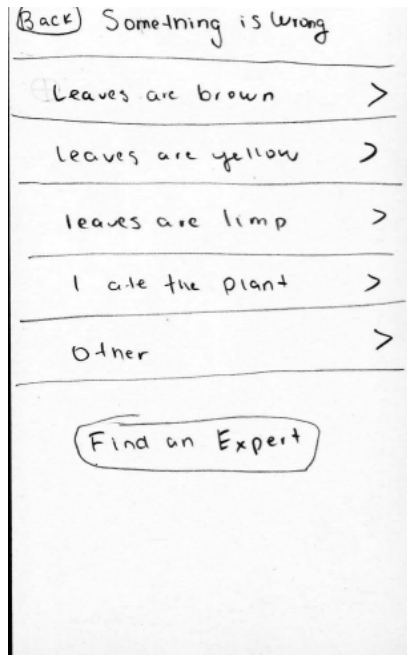 Back Something is Wrong
Leaves are brown >
leaves are yellow >
leaves are limp >
I ate the plant >
Other >
Find an Expert